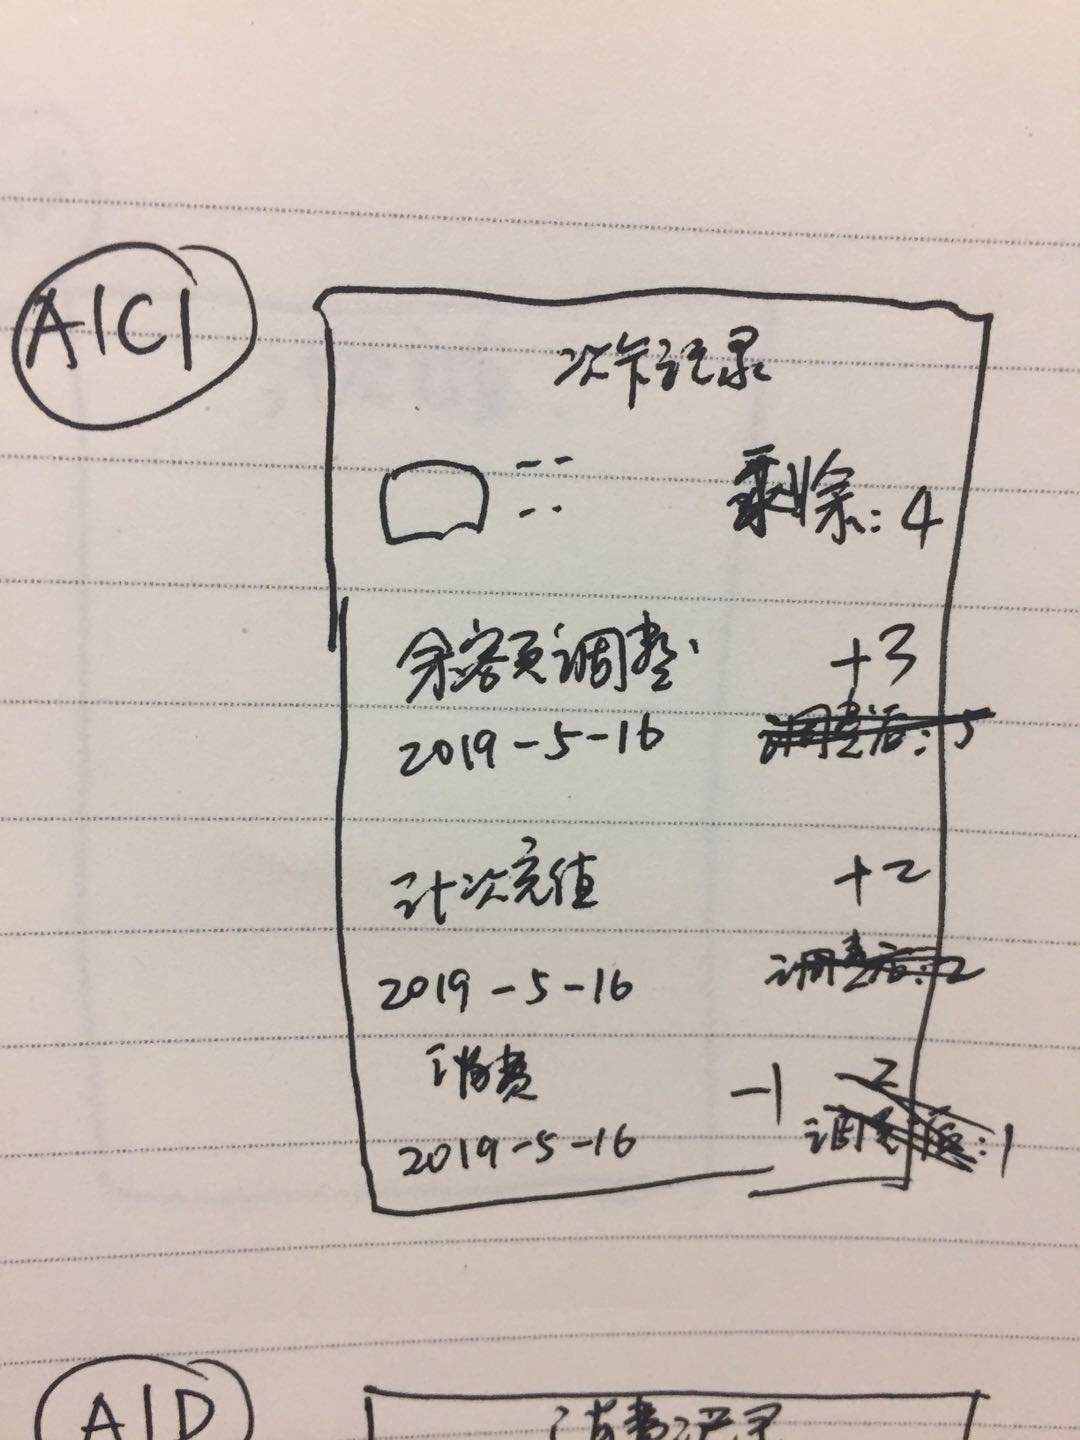 A1C1
次卡记录
剩余:4
余额调整 +3
2019-5-16 调整后:5
计次充值 +2
调整后:2
2019-5-16
消费 -1 2
2019-5-16 调整后:1
A1D
消费记录